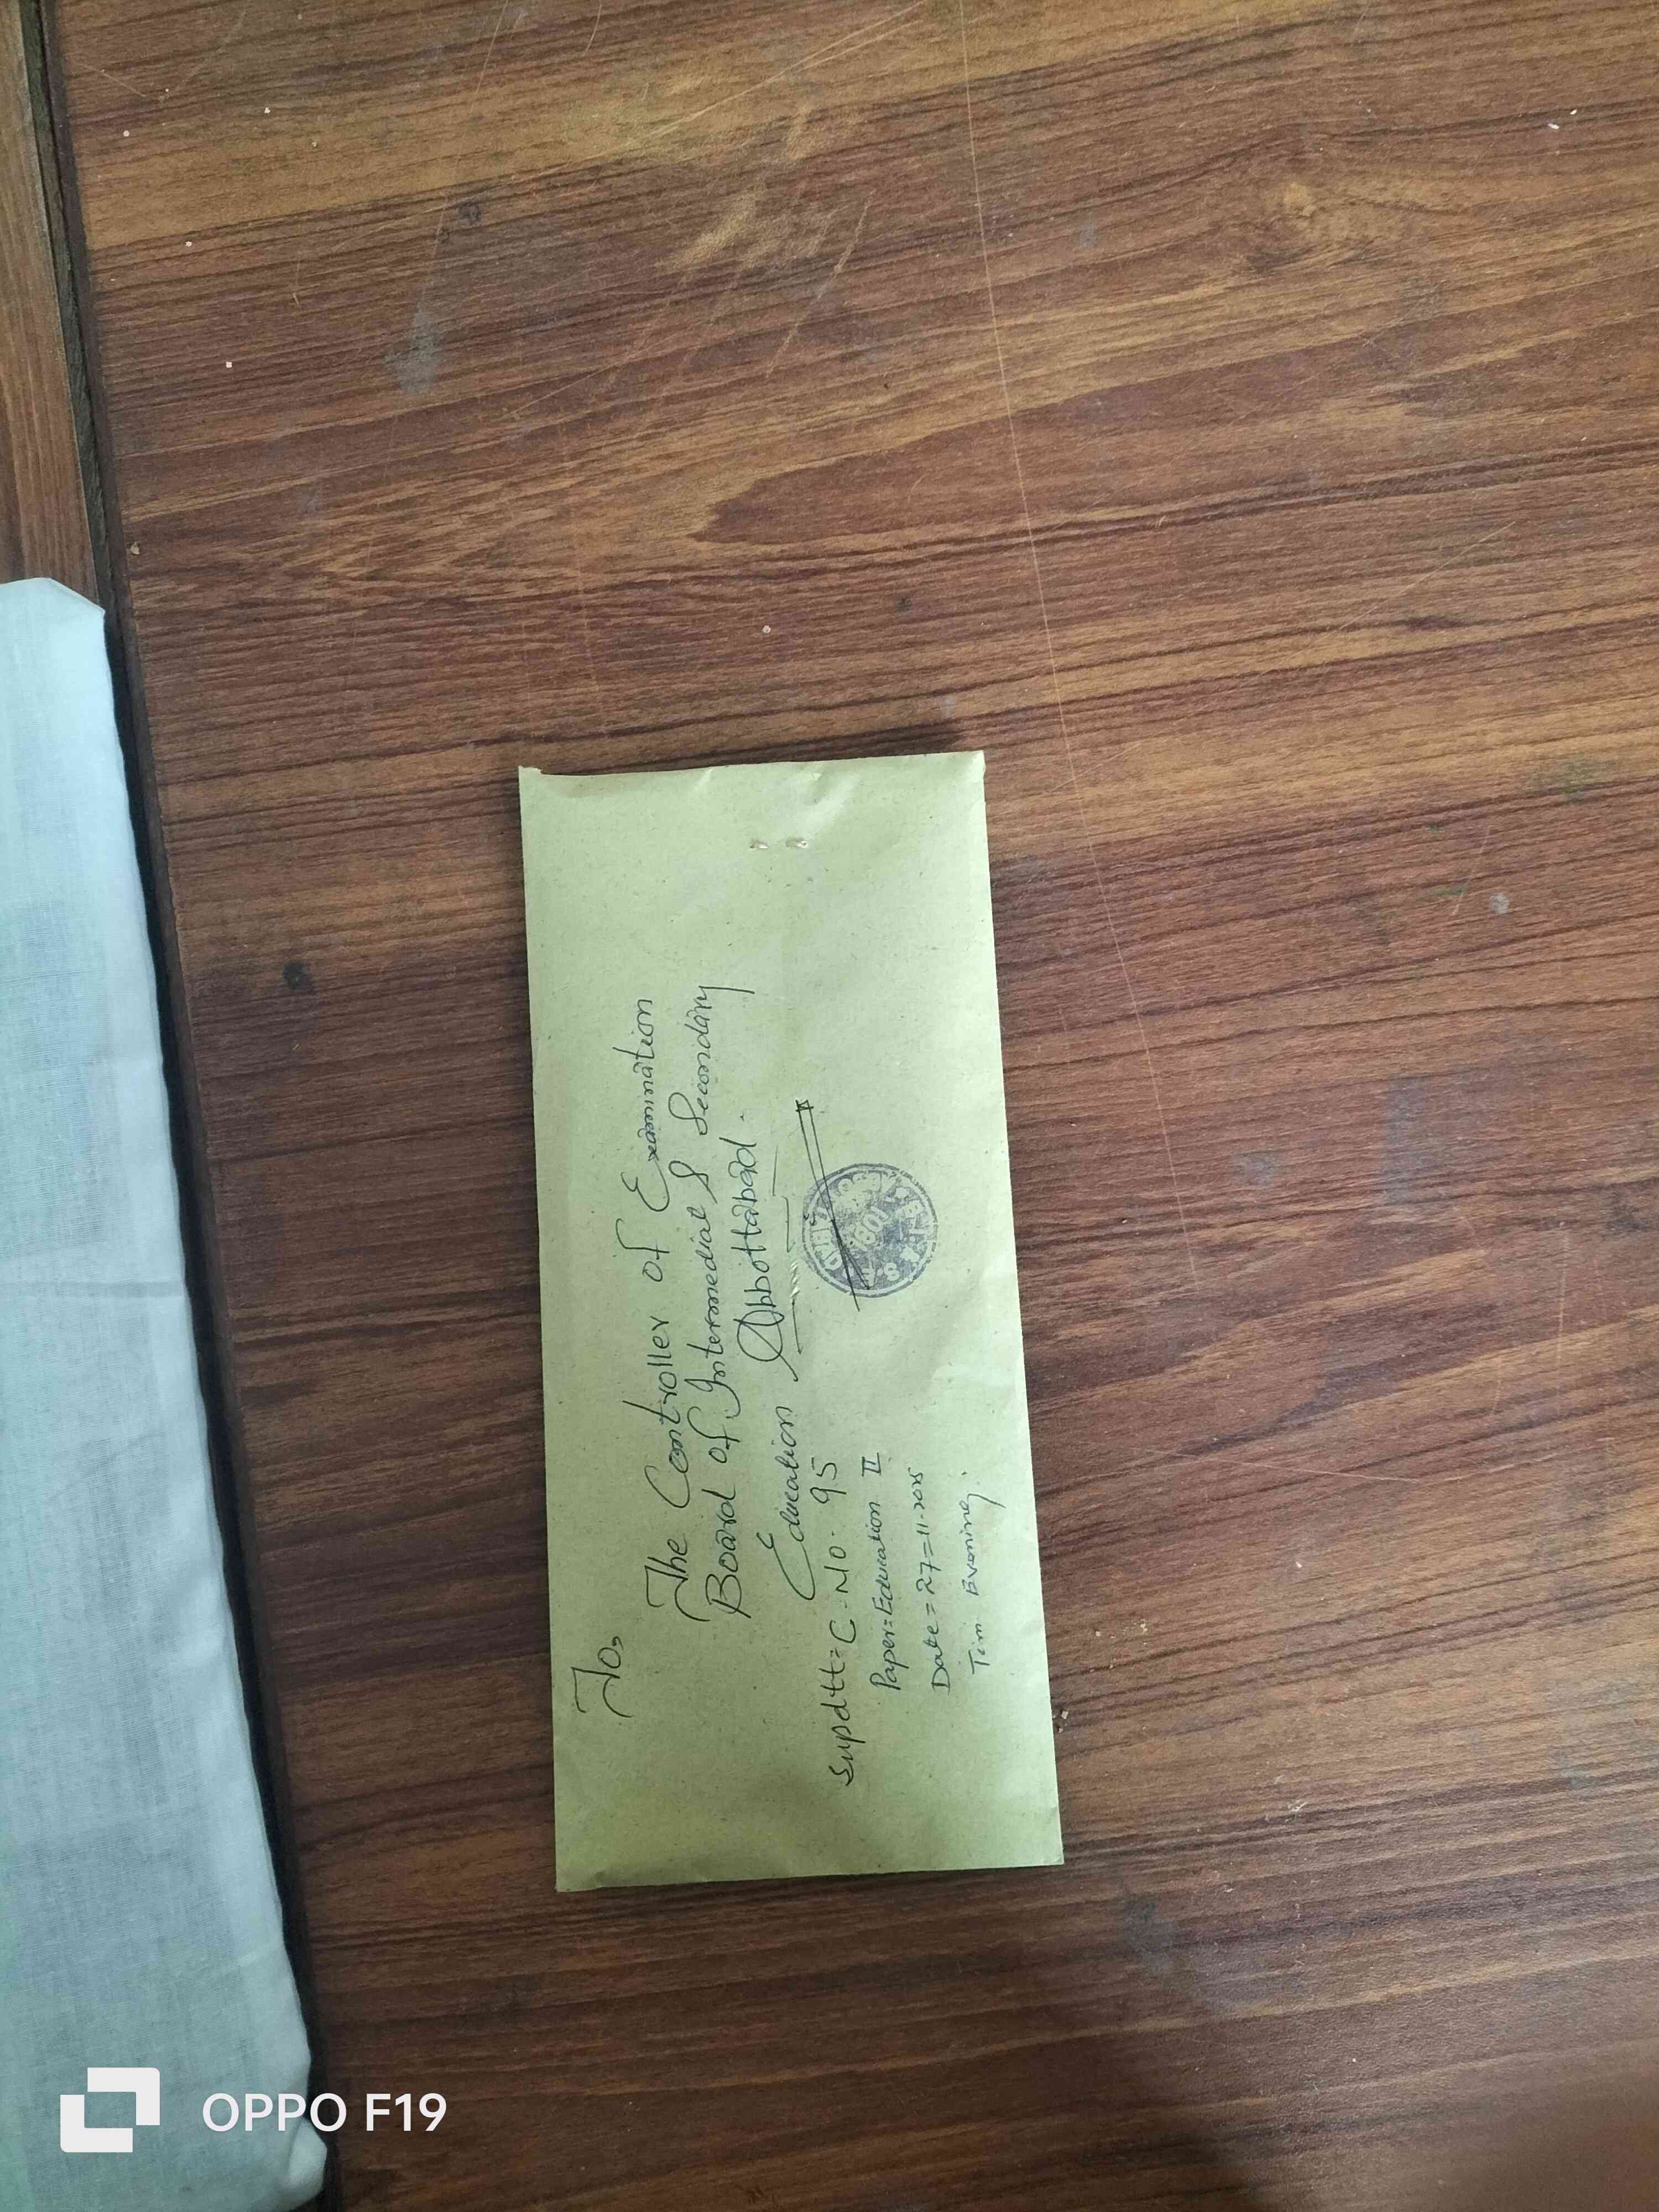 To,
The Controller of Examination
Board of Intermedial & Secondary
Education Abbottabad.
Supdtt= C-No. 95
Paper= Education II
Date = 27=11-2025
Tim Evening.
1091
OPPO F19